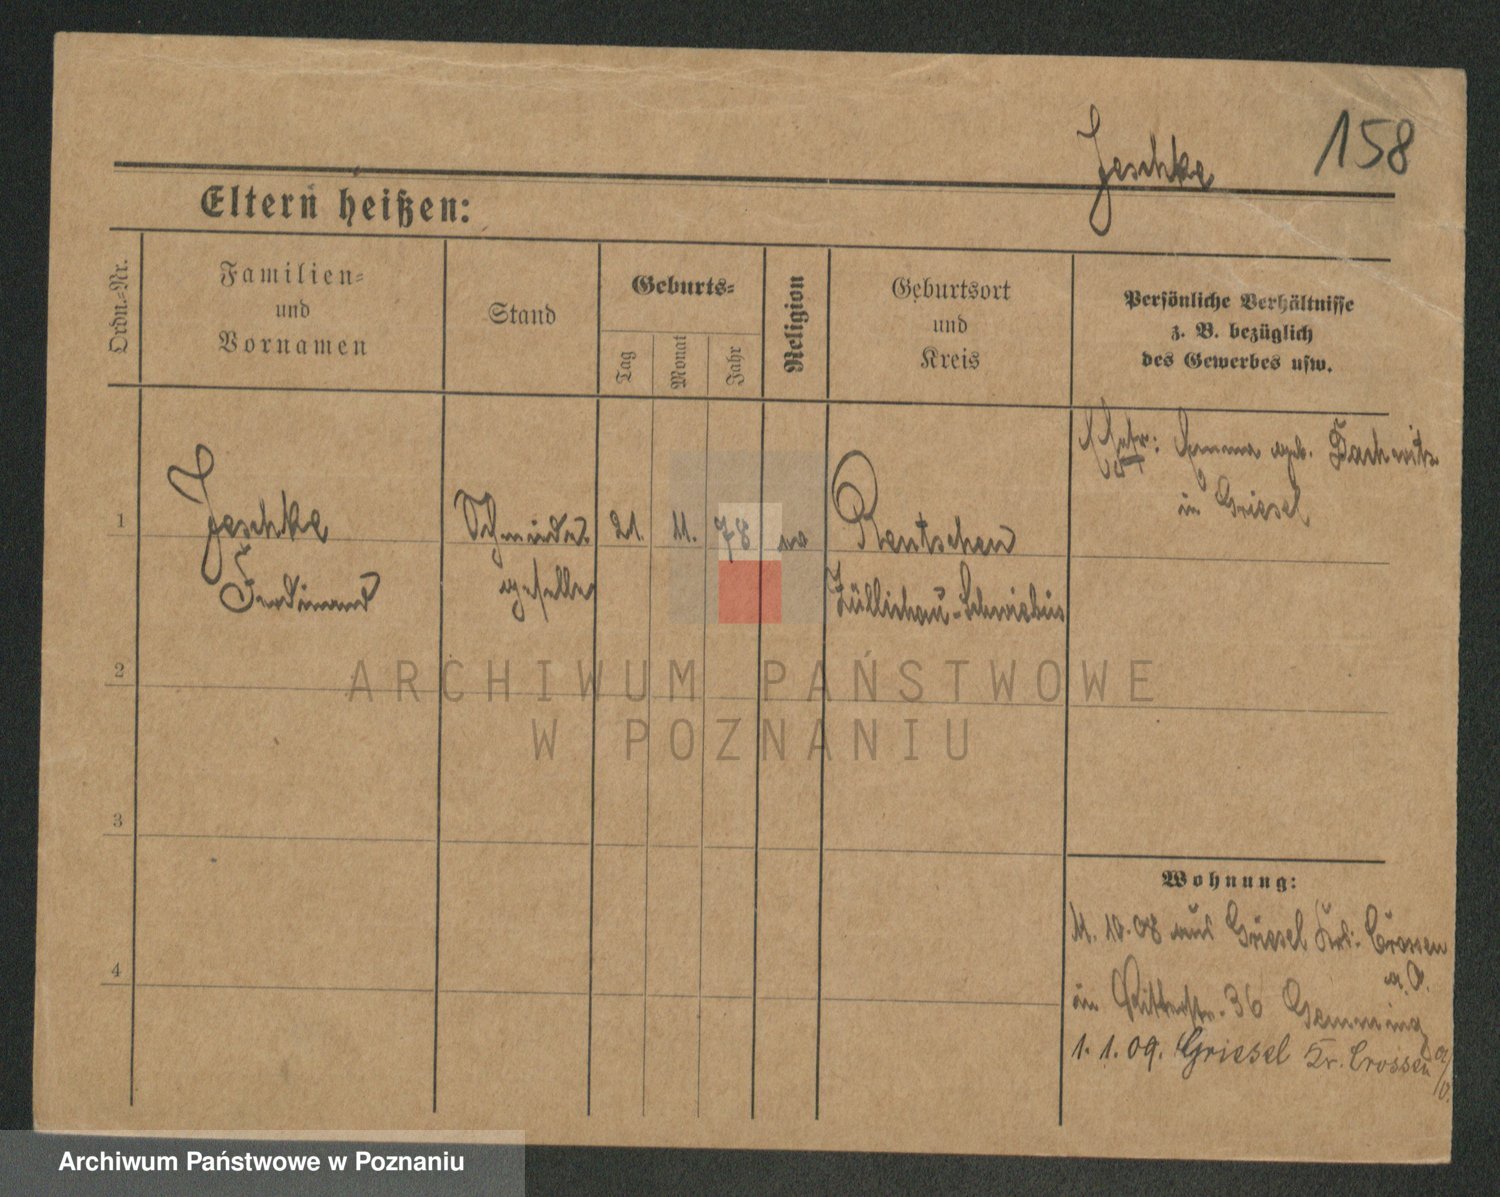 Jeschke
158
Eltern heißen:
Ordn.-Nr.
Familien-
und
Vornamen
Stand
Geburts-
Tag
Monat
Jahr
Religion
Geburtsort
und
Kreis
Persönliche Verhältnisse
z. B. bezüglich
des Gewerbes usw.
geb.
in Griesel
1
Jeschke
Schmiede-
21.
11.
78
Rentschen
Ferdinand
geselle
Züllichau-Schwiebus
2
3
4
Wohnung:
11. 10. 08 aus Griesel Krs. Crossen
a. O.
in Ritterstr. 36
1. 1. 09. Griesel Kr. Crossen a/O.
ARCHIWUM PAŃSTWOWE
W POZNANIU
Archiwum Państwowe w Poznaniu